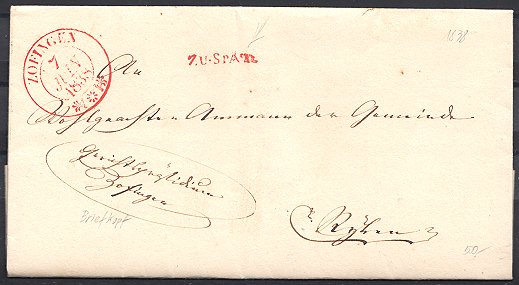 ZOFINGEN
7
JUNY
1838
ZU SPÄT
1838
An
Wohlgeachten Ammann der Gemeinde
Gerichtspräsidium
Zofingen
Ryken
Briefkopf
50/-